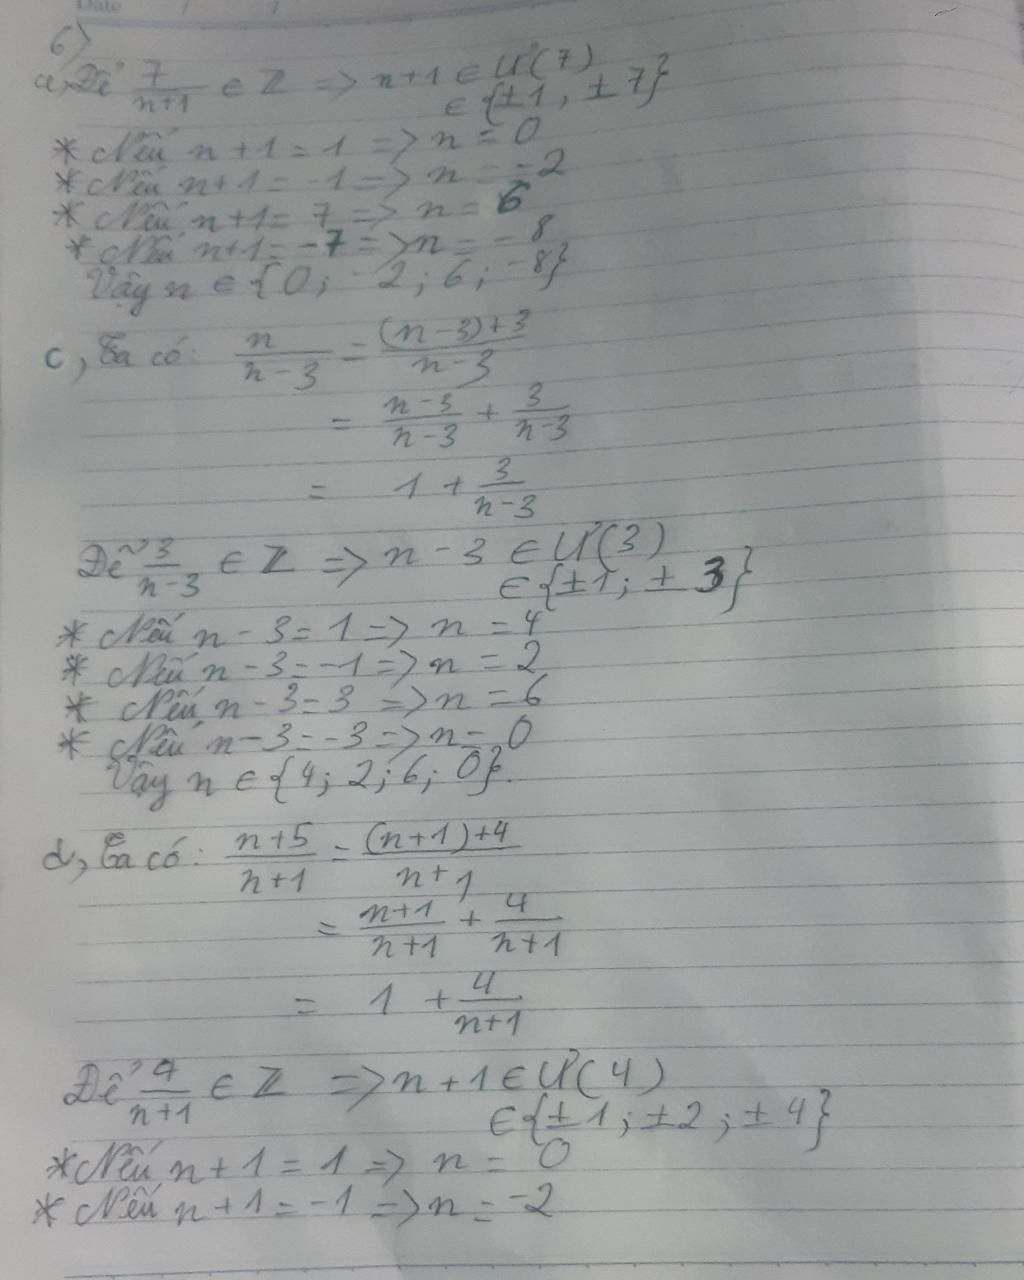 Date / /
6)
a, Để 7/(n+1) ∈ Z => n+1 ∈ Ư(7)
∈ {±1, ±7}
* Nếu n+1 = 1 => n = 0
* Nếu n+1 = -1 => n = -2
* Nếu n+1 = 7 => n = 6
* Nếu n+1 = -7 => n = -8
Vậy n ∈ {0; -2; 6; -8}
c, Ta có: n/(n-3) = ((n-3)+3)/(n-3)
= (n-3)/(n-3) + 3/(n-3)
= 1 + 3/(n-3)
Để 3/(n-3) ∈ Z => n-3 ∈ Ư(3)
∈ {±1; ±3}
* Nếu n-3 = 1 => n = 4
* Nếu n-3 = -1 => n = 2
* Nếu n-3 = 3 => n = 6
* Nếu n-3 = -3 => n = 0
Vậy n ∈ {4; 2; 6; 0}.
d, Ta có: (n+5)/(n+1) = ((n+1)+4)/(n+1)
= (n+1)/(n+1) + 4/(n+1)
= 1 + 4/(n+1)
Để 4/(n+1) ∈ Z => n+1 ∈ Ư(4)
∈ {±1; ±2; ±4}
* Nếu n+1 = 1 => n = 0
* Nếu n+1 = -1 => n = -2